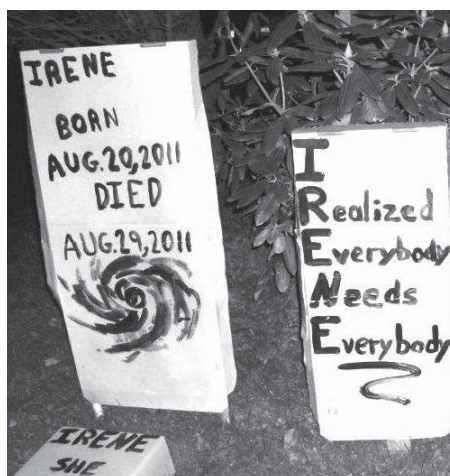 IRENE
BORN
AUG.20,2011
DIED
AUG.29,2011
I
Realized
Everybody
Needs
Everybody
IRENE
SHE